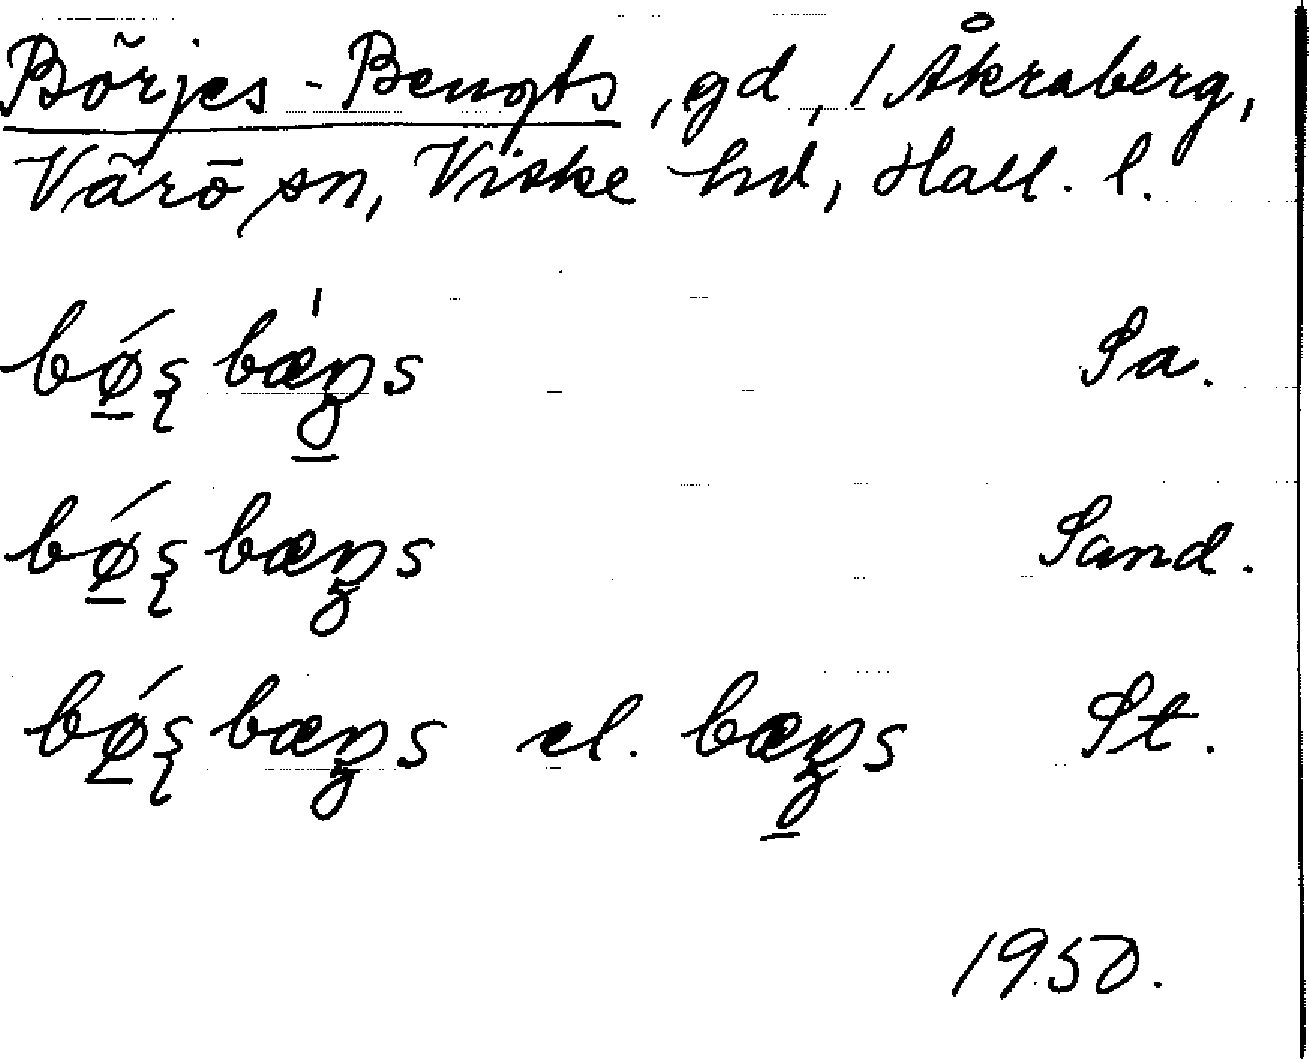 Börjes-Bengts, gd, 1 Åkraberg,
Värö sn, Viske hd, Hall. l.
bǿʂ bæŋs Sa.
bǿʂ bæŋs Sand.
bǿʂ bæŋs el. bæŋs St.
1950.